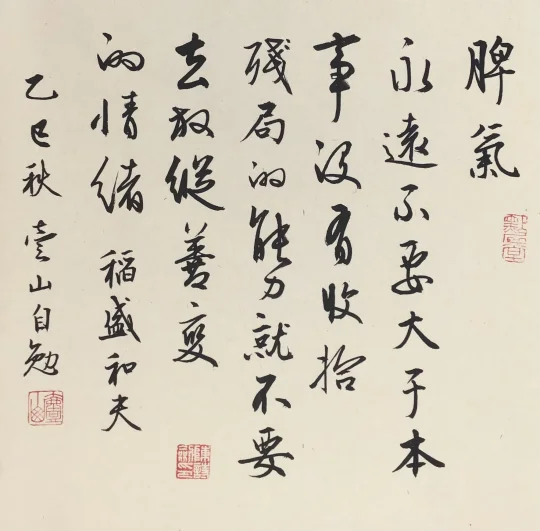 脾氣
永遠不要大于本
事没有收拾
殘局的能力就不要
去放縱善變
的情緒 稻盛和夫
乙巳秋 雲山自勉